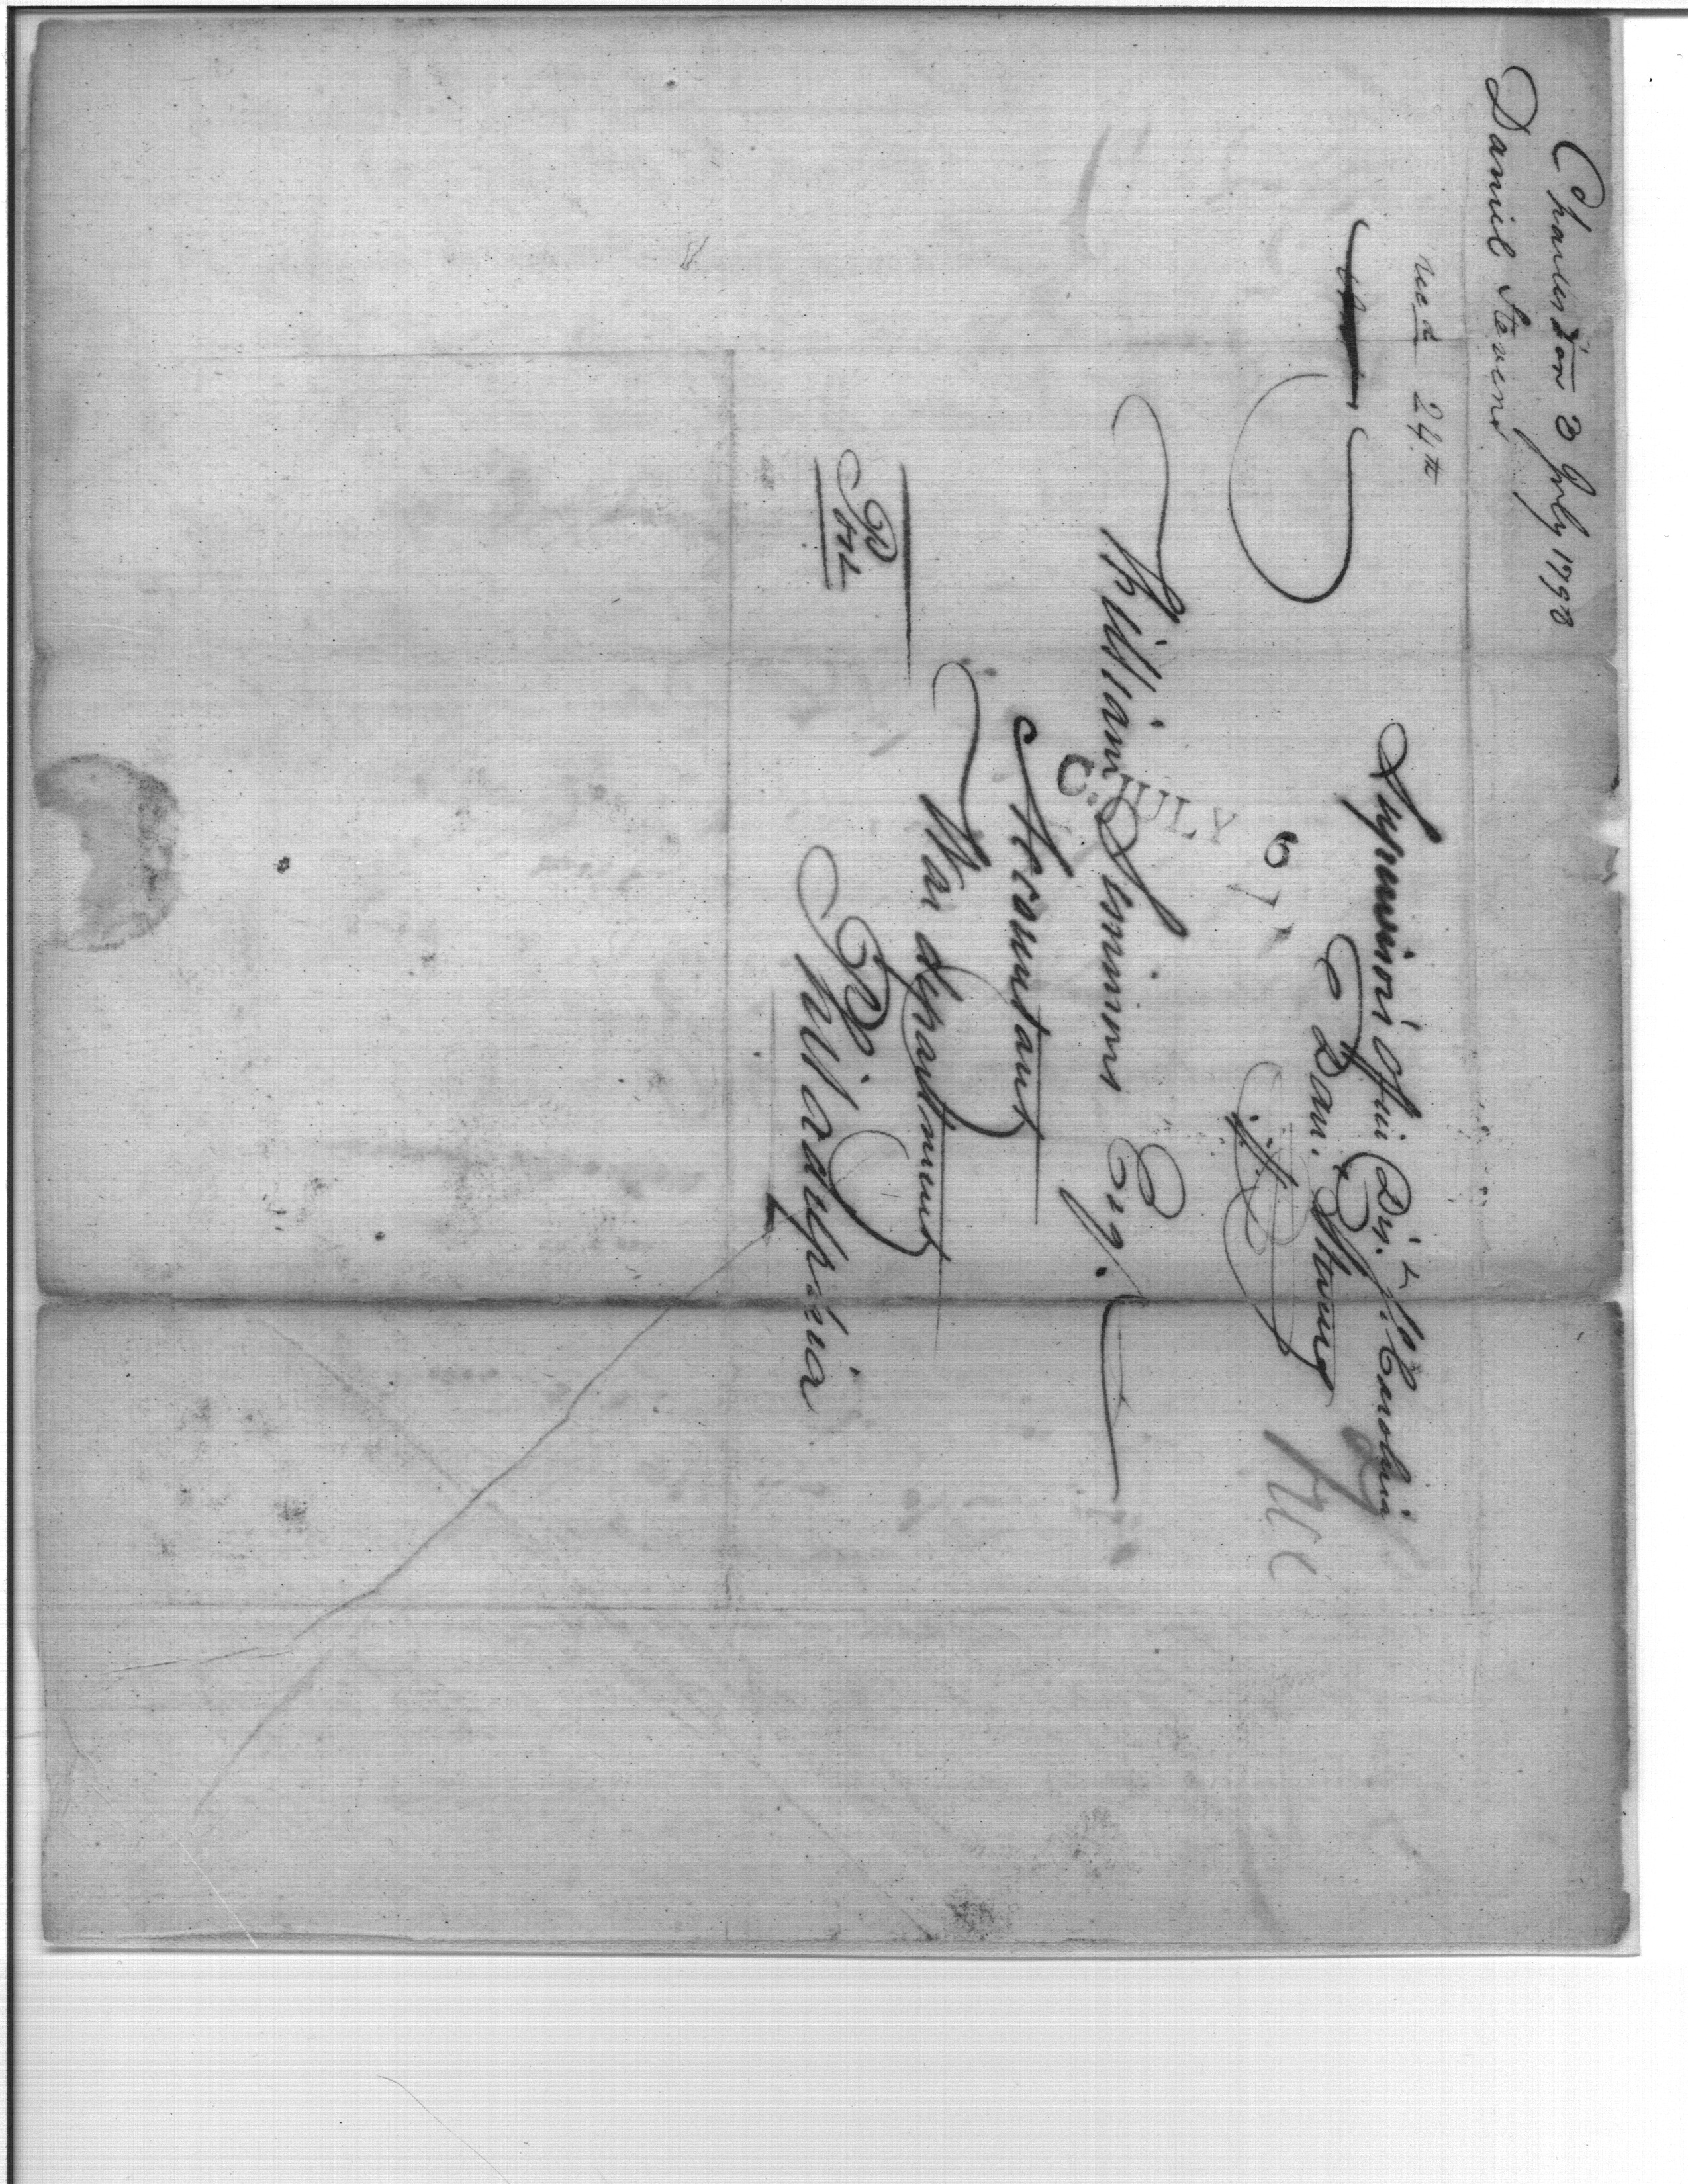 Charleston 3 July 1798
Daniel Stevens
recd 24th
Supervisors Office Dist. So. Carolina
Dan. Stevens
JULY
William Simmons Esq.
Accountant
War department
Philadelphia
Port